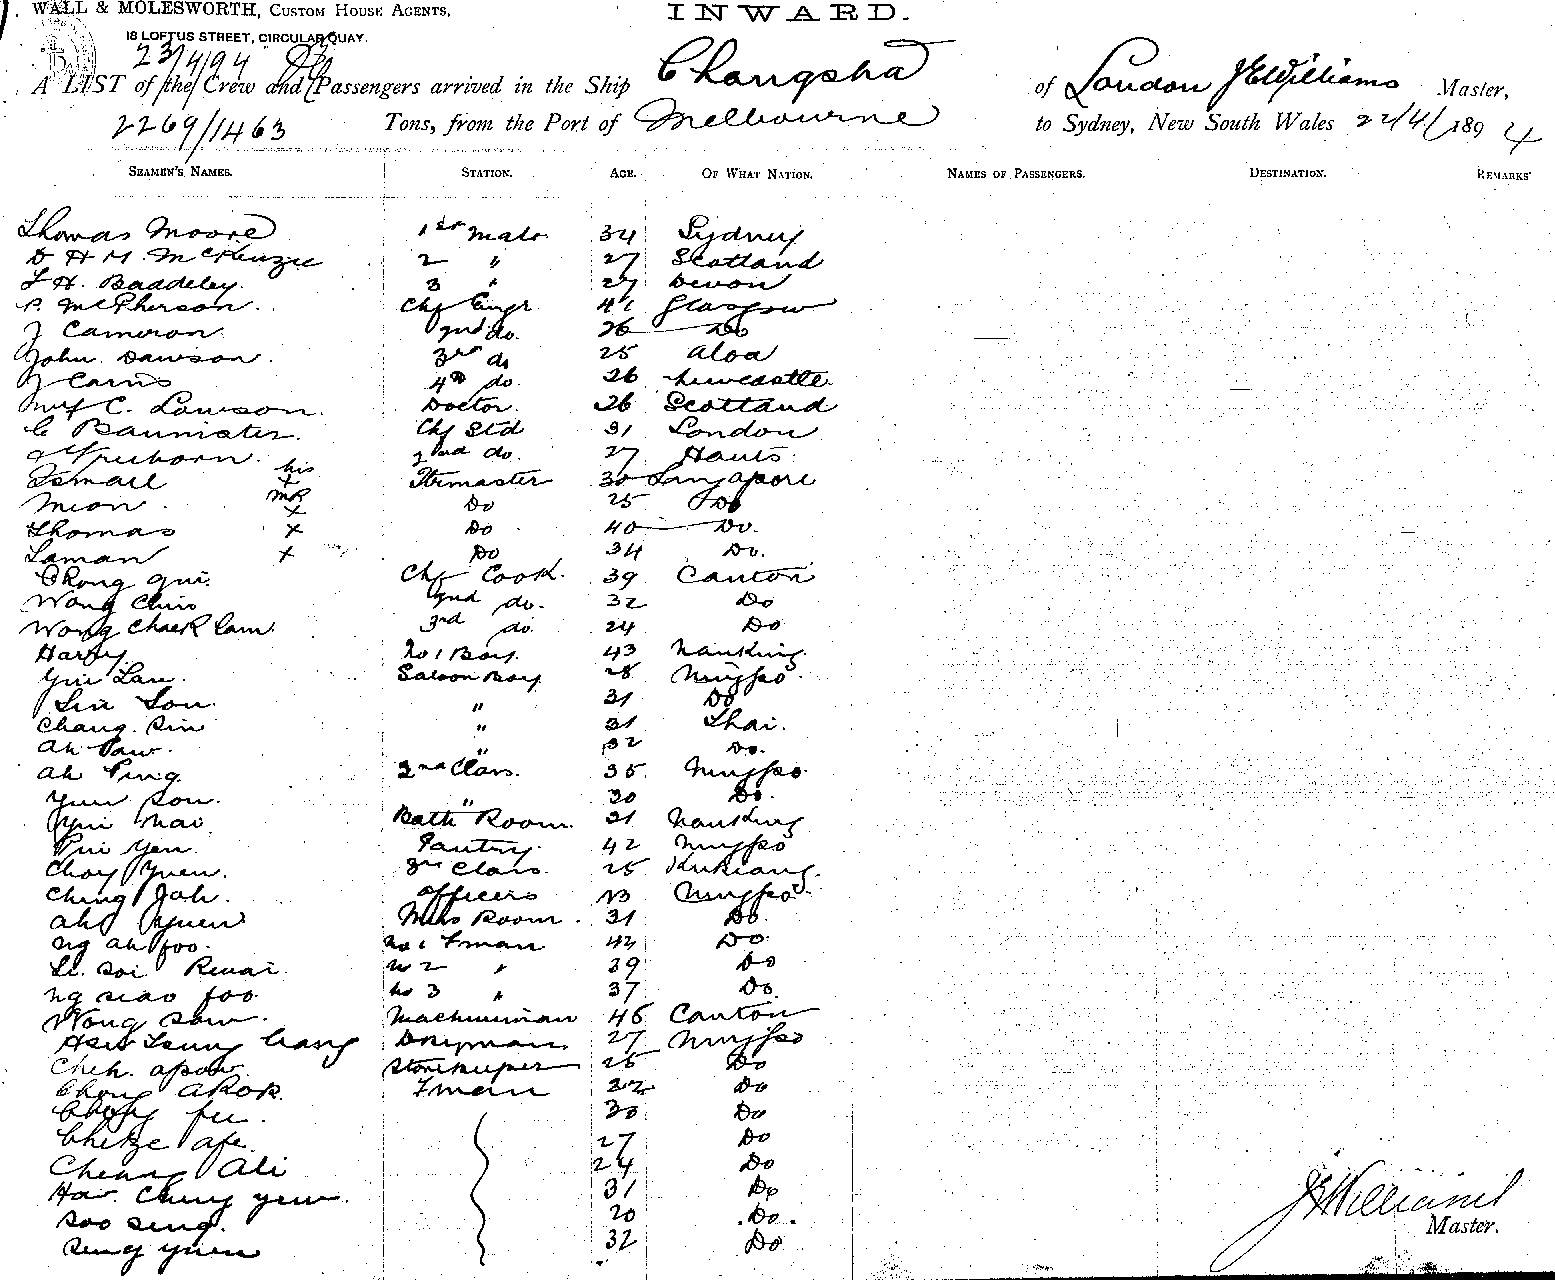 WALL & MOLESWORTH, CUSTOM HOUSE AGENTS,
INWARD.
18 LOFTUS STREET, CIRCULAR QUAY.
23/4/94
A LIST of the Crew and Passengers arrived in the Ship Changsha of London J E Williams Master,
2269/1463 Tons, from the Port of Melbourne to Sydney, New South Wales 22/4/1894
SEAMEN'S NAMES. STATION. AGE. OF WHAT NATION. NAMES OF PASSENGERS. DESTINATION. REMARKS
Thomas Moore 1st Mate 34 Sydney
D H M. McKenzie 2 " 27 Scotland
F H. Baddeley. 3 " 27 Devon
P. McPherson. Chf Engr 41 Glasgow
J Cameron 2nd do. 26 Do
John Dawson. 3rd do 25 Aloa
J Carns 4th do. 26 Newcastle
C. Lawson. Doctor. 26 Scotland
C Bannister. Chf Std 31 London
Freeborn. 2nd do. 27 Hants
Ismail his x 30 Singapore
Mion. MR x Do 25 Do
Thomas x Do 40 Do.
Laman x Do 34 Do.
Chong Qui. Chf Cook. 39 Canton
Wong Chin 2nd do. 32 Do
Wong Chack Cam. 3rd do. 24 Do
Harry No 1 Boy. 43 Nanking
Yui Lan. Saloon Boy 28 Ningpo.
Sin Son. " 31 Do
Chang. Sin " 31 Shai.
Ah Paw. " 32 Do.
Ah Ping. 2nd Class. 35 Ningpo.
Yuu Son. " 30 Do.
Yui Mai Bath Room. 31 Nanking
Pui Yen. Pantry. 42 Ningpo
Choy Yuen. 3rd Class. 25 Kukiang.
Ching Jah. Officers Ningpo.
Ah Yuen Mess Room. 31 Do.
Ng Ah Foo. No 1 Fman 42 Do.
Li. Soi No 2 " 39 Do
Ng Siao Foo. No 3 " 37 Do.
Wong Saw. Machineman 46 Canton
Tsung Donkyman 27 Ningpo
Chek. Apow. Storekeeper 25 Do
Chong Akok. Fman 32 Do
Fu. 30 Do
Afe. 27 Do
Cheung Ali 24 Do
Chung Yew. 31 Do
Soo Seng. 20 Do.
Seng Yuen 32 Do
J E Williams
Master.